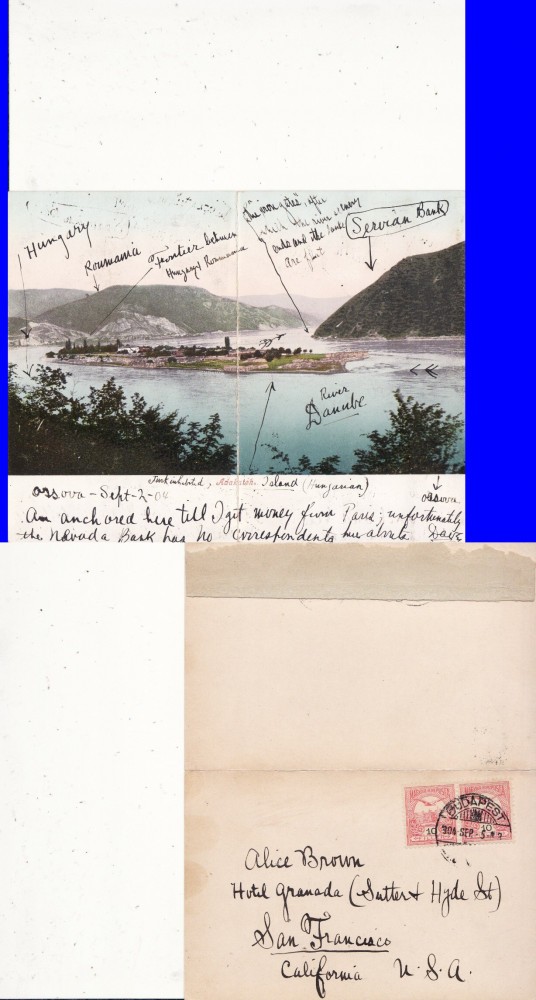 Hungary
Roumania
Frontier between
Hungary & Roumania
"the iron gates" after
which the river
ends and the
are flat
Servian Bank
River
Danube
Turk inhabited, Adakaleh. Island (Hungarian)
Orsova
Orsova - Sept - 2 - 04
Am anchored here till I get money from Paris; unfortunately
the Nevada Bank has no correspondents hereabouts Dave
BUDAPEST
904 SEP
10
10
Alice Brown
Hotel Granada (Sutter & Hyde St)
San Francisco
California U.S.A.